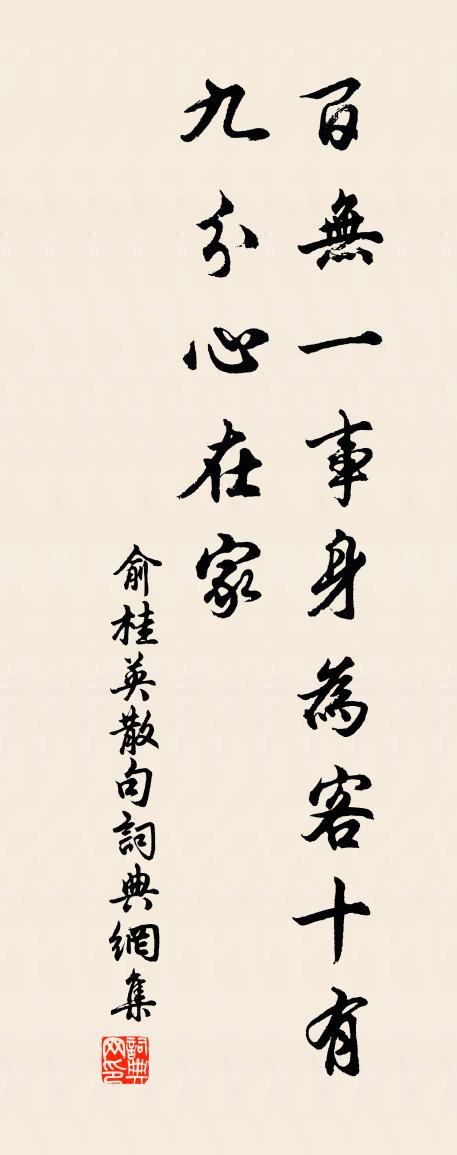 百無一事身為客十有
九分心在家
俞桂英散句詞典網集
詞典网印